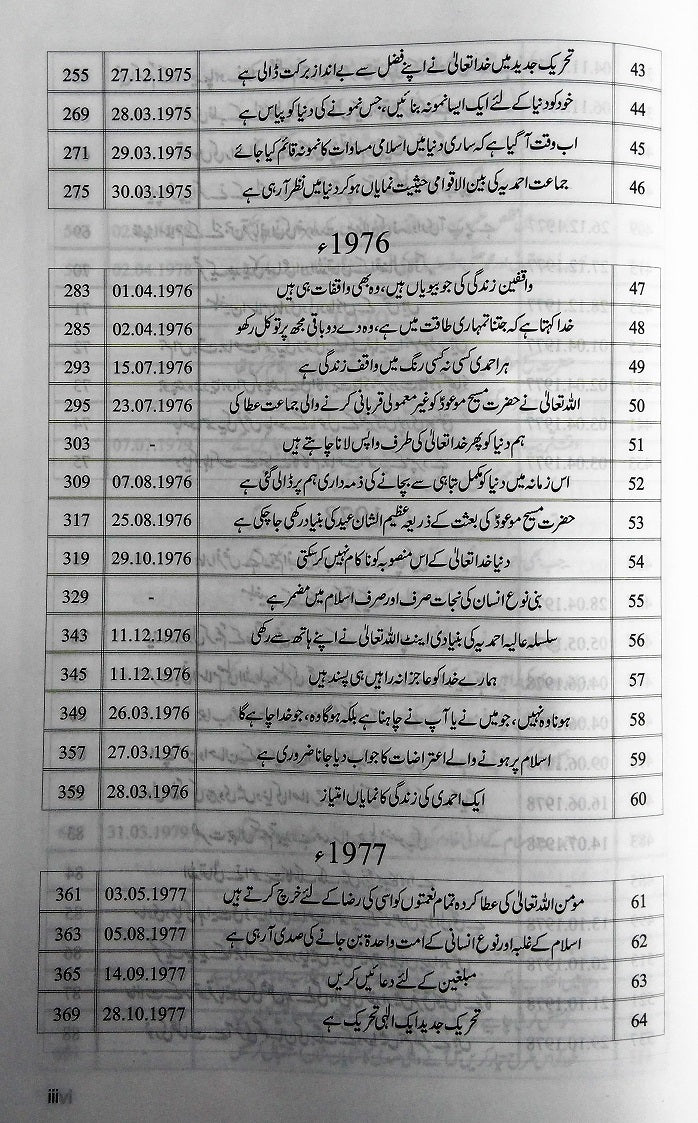 43 تحریک جدید میں خدا تعالیٰ نے اپنے فضل سے بے انداز برکت ڈالی ہے 27.12.1975 255
44 خود کو دنیا کے لئے ایک ایسا نمونہ بنائیں، جس نمونے کی دنیا کو پیاس ہے 28.03.1975 269
45 اب وقت آ گیا ہے کہ ساری دنیا میں اسلامی مساوات کا نمونہ قائم کیا جائے 29.03.1975 271
46 جماعت احمدیہ کی بین الاقوامی حیثیت نمایاں ہو کر دنیا میں نظر آ رہی ہے 30.03.1975 275
1976ء
47 واقفین زندگی کی جو بیویاں ہیں، وہ بھی واقفات ہی ہیں 01.04.1976 283
48 خدا کہتا ہے کہ جتنا تمہاری طاقت میں ہے، وہ دے دو باقی مجھ پر توکل رکھو 02.04.1976 285
49 ہر احمدی کسی نہ کسی رنگ میں واقف زندگی ہے 15.07.1976 293
50 اللہ تعالیٰ نے حضرت مسیح موعودؑ کو غیر معمولی قربانی کرنے والی جماعت عطا کی 23.07.1976 295
51 ہم دنیا کو پھر خدا تعالیٰ کی طرف واپس لانا چاہتے ہیں - 303
52 اس زمانہ میں دنیا کو مکمل تباہی سے بچانے کی ذمہ داری ہم پر ڈالی گئی ہے 07.08.1976 309
53 حضرت مسیح موعودؑ کی بعثت کے ذریعہ عظیم الشان عید کی بنیاد رکھی جا چکی ہے 25.08.1976 317
54 دنیا خدا تعالیٰ کے اس منصوبہ کو ناکام نہیں کر سکتی 29.10.1976 319
55 بنی نوع انسان کی نجات صرف اور صرف اسلام میں مضمر ہے - 329
56 سلسلہ عالیہ احمدیہ کی بنیادی اینٹ اللہ تعالیٰ نے اپنے ہاتھ سے رکھی 11.12.1976 343
57 ہمارے خدا کو عاجزانہ راہیں ہی پسند ہیں 11.12.1976 345
58 ہونا وہ نہیں، جو میں نے یا آپ نے چاہنا ہے بلکہ ہوگا وہ، جو خدا چاہے گا 26.03.1976 349
59 اسلام پر ہونے والے اعتراضات کا جواب دیا جانا ضروری ہے 27.03.1976 357
60 ایک احمدی کی زندگی کا نمایاں امتیاز 28.03.1976 359
1977ء
61 مومن اللہ تعالیٰ کی عطا کردہ تمام نعمتوں کو اسی کی رضا کے لئے خرچ کرتے ہیں 03.05.1977 361
62 اسلام کے غلبہ اور نوع انسانی کے امت واحدۃ بن جانے کی صدی آ رہی ہے 05.08.1977 363
63 مبلغین کے لئے دعائیں کریں 14.09.1977 365
64 تحریک جدید ایک الٰہی تحریک ہے 28.10.1977 369
iii